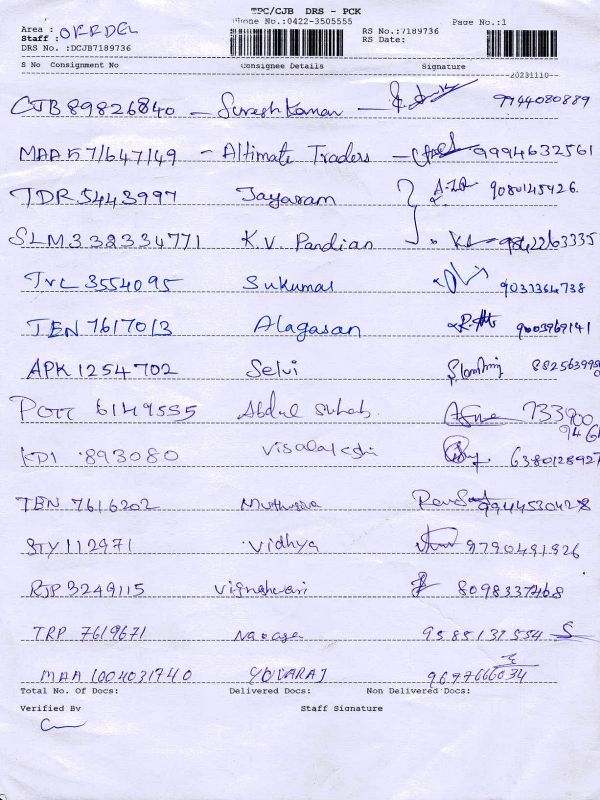 TPC/CJB DRS - PCK
Phone No.:0422-3505555
Page No.:1
Area :
Staff : OFFDEL
DRS No. :DCJB7189736
RS No.:7189736
RS Date:
S No Consignment No Consignee Details Signature
20231110
CJB 89826840 - Sureshkumar - 9944080889
MAA 571647149 - Altimate Traders - 9994632561
TDR 5443997 Jayaram 9080145926
SLM 332334771 K.V. Pandian 9842263335
TVL 3554095 Sukumar 9031364738
TEN 7617013 Alagasan 9003969141
APK 1254702 Selvi
6149555 Abdul
KDI 893080 Visalakshi 6380128927
TEN 7616202 9944530428
STY 112971 Vidhya 9790491926
RJP 3249115 8098337468
TRP 7619671
MAA 1004031740 YUVARAJ 9697666034
Total No. Of Docs: Delivered Docs: Non Delivered Docs:
Verified By Staff Signature